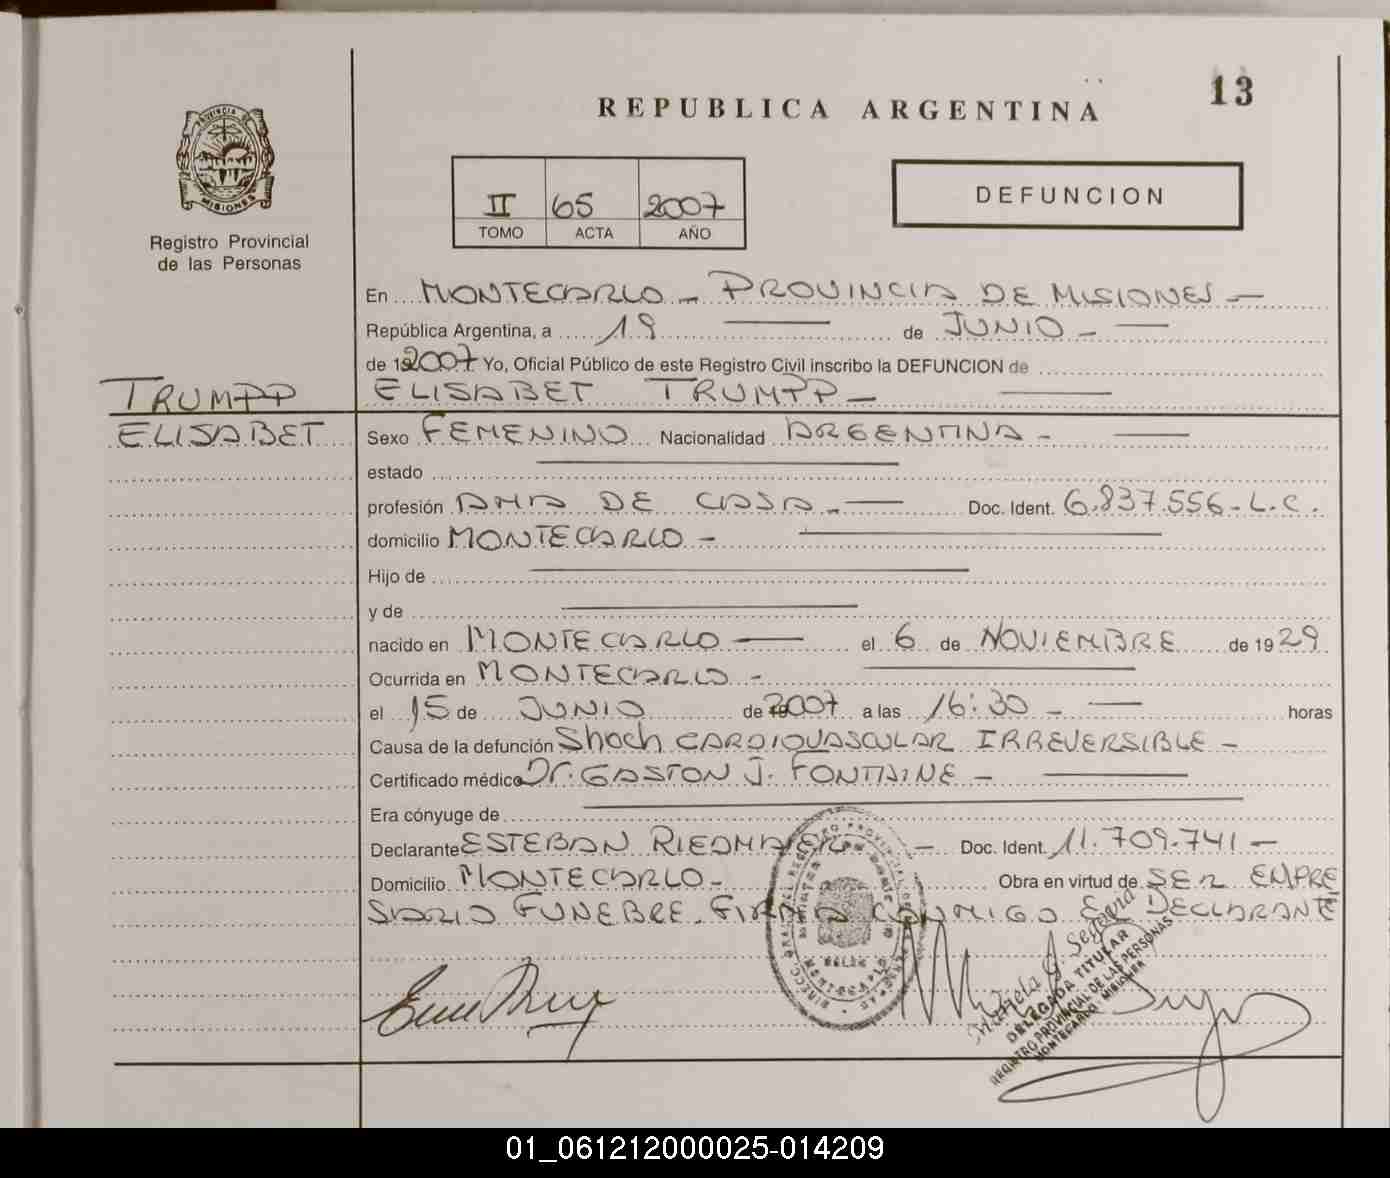 13
REPUBLICA ARGENTINA
PROVINCIA DE
MISIONES
Registro Provincial
de las Personas
II 65 2007
TOMO ACTA AÑO
DEFUNCION
En MONTECARLO - PROVINCIA DE MISIONES -
República Argentina, a 19 de JUNIO -
de 2007 Yo, Oficial Público de este Registro Civil inscribo la DEFUNCION de
TRUMPP ELISABET TRUMPP -
ELISABET Sexo FEMENINO Nacionalidad ARGENTINA -
estado
profesión AMA DE CASA - Doc. Ident. 6.837.556 - L.C.
domicilio MONTECARLO -
Hijo de
y de
nacido en MONTECARLO el 6 de NOVIEMBRE de 1929
Ocurrida en MONTECARLO -
el 15 de JUNIO de 2007 a las 16:30 - horas
Causa de la defunción Shoch CARDIOVASCULAR IRREVERSIBLE -
Certificado médico Dr. GASTON J. FONTAINE -
Era cónyuge de
Declarante ESTEBAN Doc. Ident. 11.709.741 -
Domicilio MONTECARLO - Obra en virtud de SER EMPRE
SARIO FUNEBRE. FIRMA CONMIGO EL DECLARANTE
Mariela G. Segovia
DELEGADA TITULAR
REGISTRO PROVINCIAL DE LAS PERSONAS
MONTECARLO - MISIONES
01_061212000025-014209